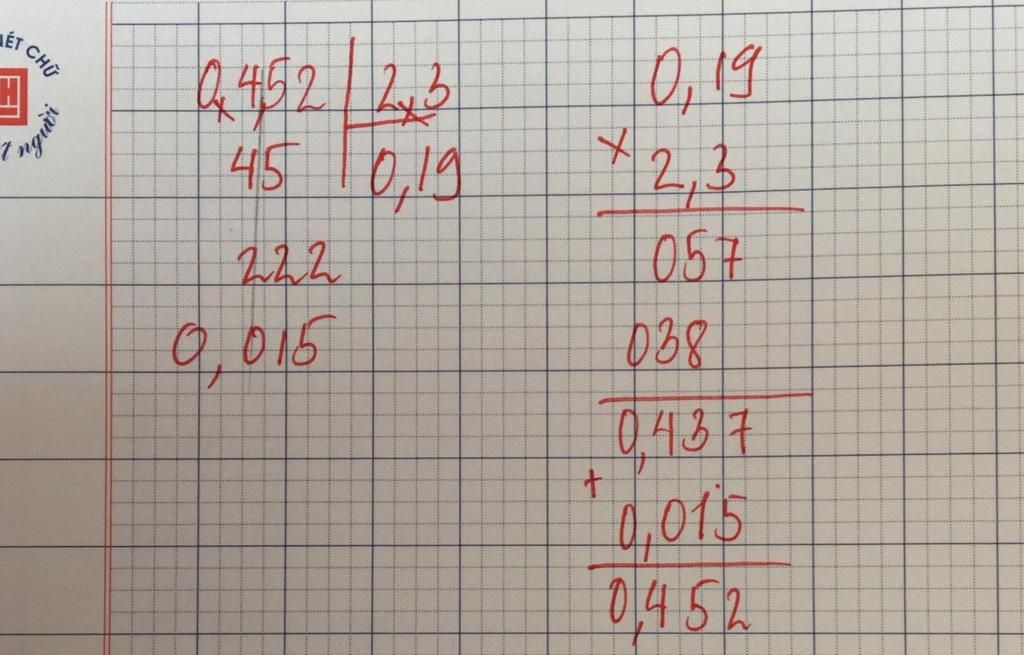 IẾT CHỮ
H
người
0,4,52 2,3
45 0,19
222
0,015
0,19
×
2,3
057
038
0,437
+
0,015
0,452